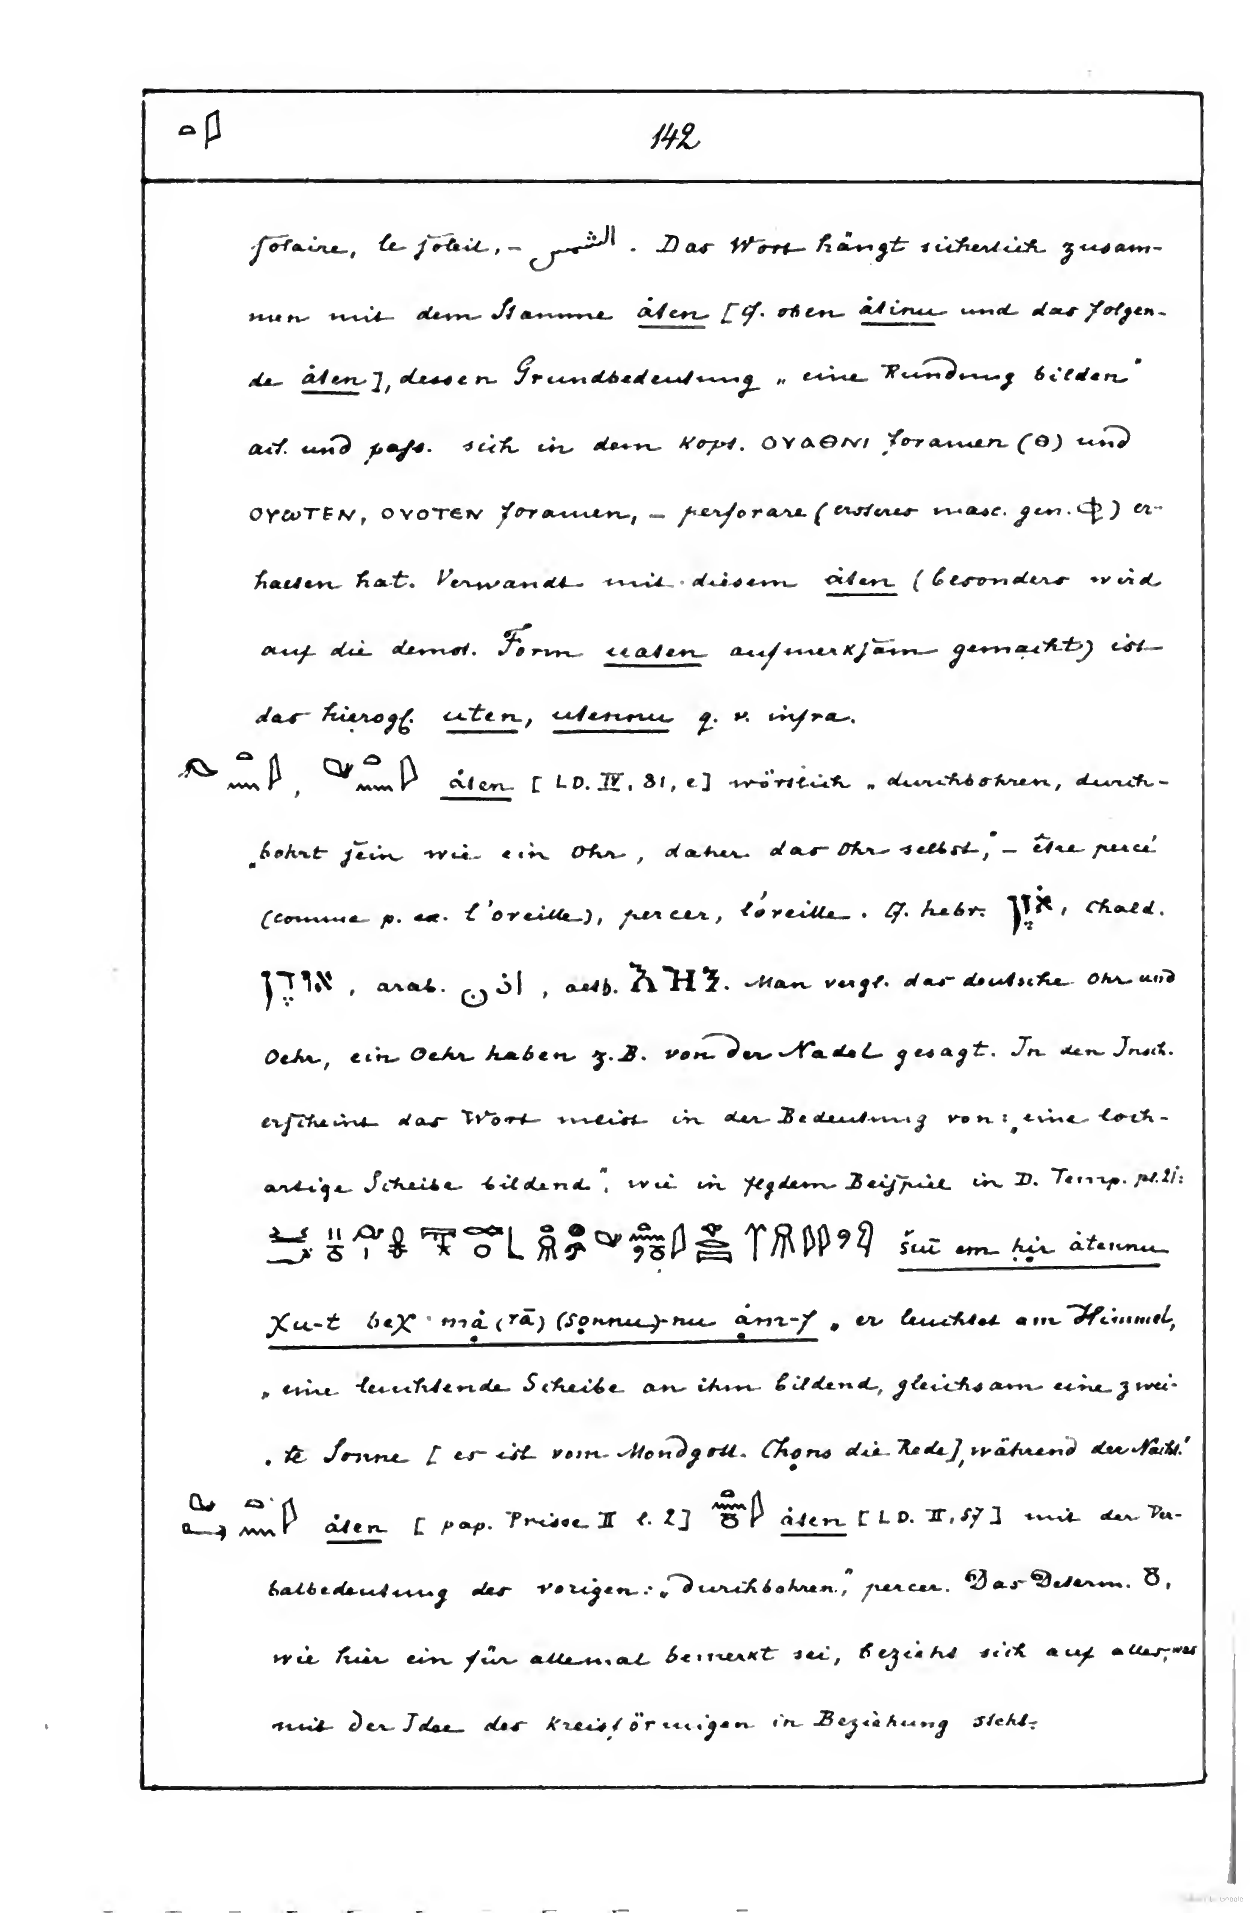 142
solaire, le soleil, – الشمس . Das Wort hängt sicherlich zusam-
men mit dem Stamme åten [cf. oben åtinu und das folgen-
de åten], dessen Grundbedeutung „eine Rundung bilden“
act. und pass. sich in dem Kopt. ⲟⲩⲁⲑⲛⲓ foramen (ⲑ) und
ⲟⲩⲱⲧⲉⲛ, ⲟⲩⲟⲧⲉⲛ foramen, – perforare (ersteres masc. gen. ) er-
halten hat. Verwandt mit diesem åten (besonders wird
auf die demot. Form uaten aufmerksam gemacht) ist
das hierogl. uten, utennu q. v. infra.
åten [LD. IV, 81, e] wörtlich „durchbohren, durch-
„bohrt sein wie ein Ohr, daher das Ohr selbst,“ – être percé
(comme p. ex. l'oreille), percer, l'oreille. Cf. hebr. אֹזֶן, chald.
אוּדֶן, arab. اذن, aeth. እዝን. Man vergl. das deutsche Ohr und
Oehr, ein Oehr haben z. B. von der Nadel gesagt. In den Insch.
erscheint das Wort meist in der Bedeutung von: „eine loch-
artige Scheibe bildend“, wie in flgdem Beispiel in D. Temp. pl. 21:
šuï em ḥir åtennu
χu-t beχ må (rā) (sonnu)-nu åm-f „er leuchtet am Himmel,
„eine leuchtende Scheibe an ihm bildend, gleichsam eine zwei-
„te Sonne [es ist vom Mondgott Chons die Rede], während der Nacht.“
åten [pap. Prisse II l. 2] åten [LD. II, 57] mit der Ver-
balbedeutung des vorigen: „durchbohren,“ percer. Das Determ. ,
wie hier ein für allemal bemerkt sei, bezieht sich auf alles, was
mit der Idee des Kreisförmigen in Beziehung steht.